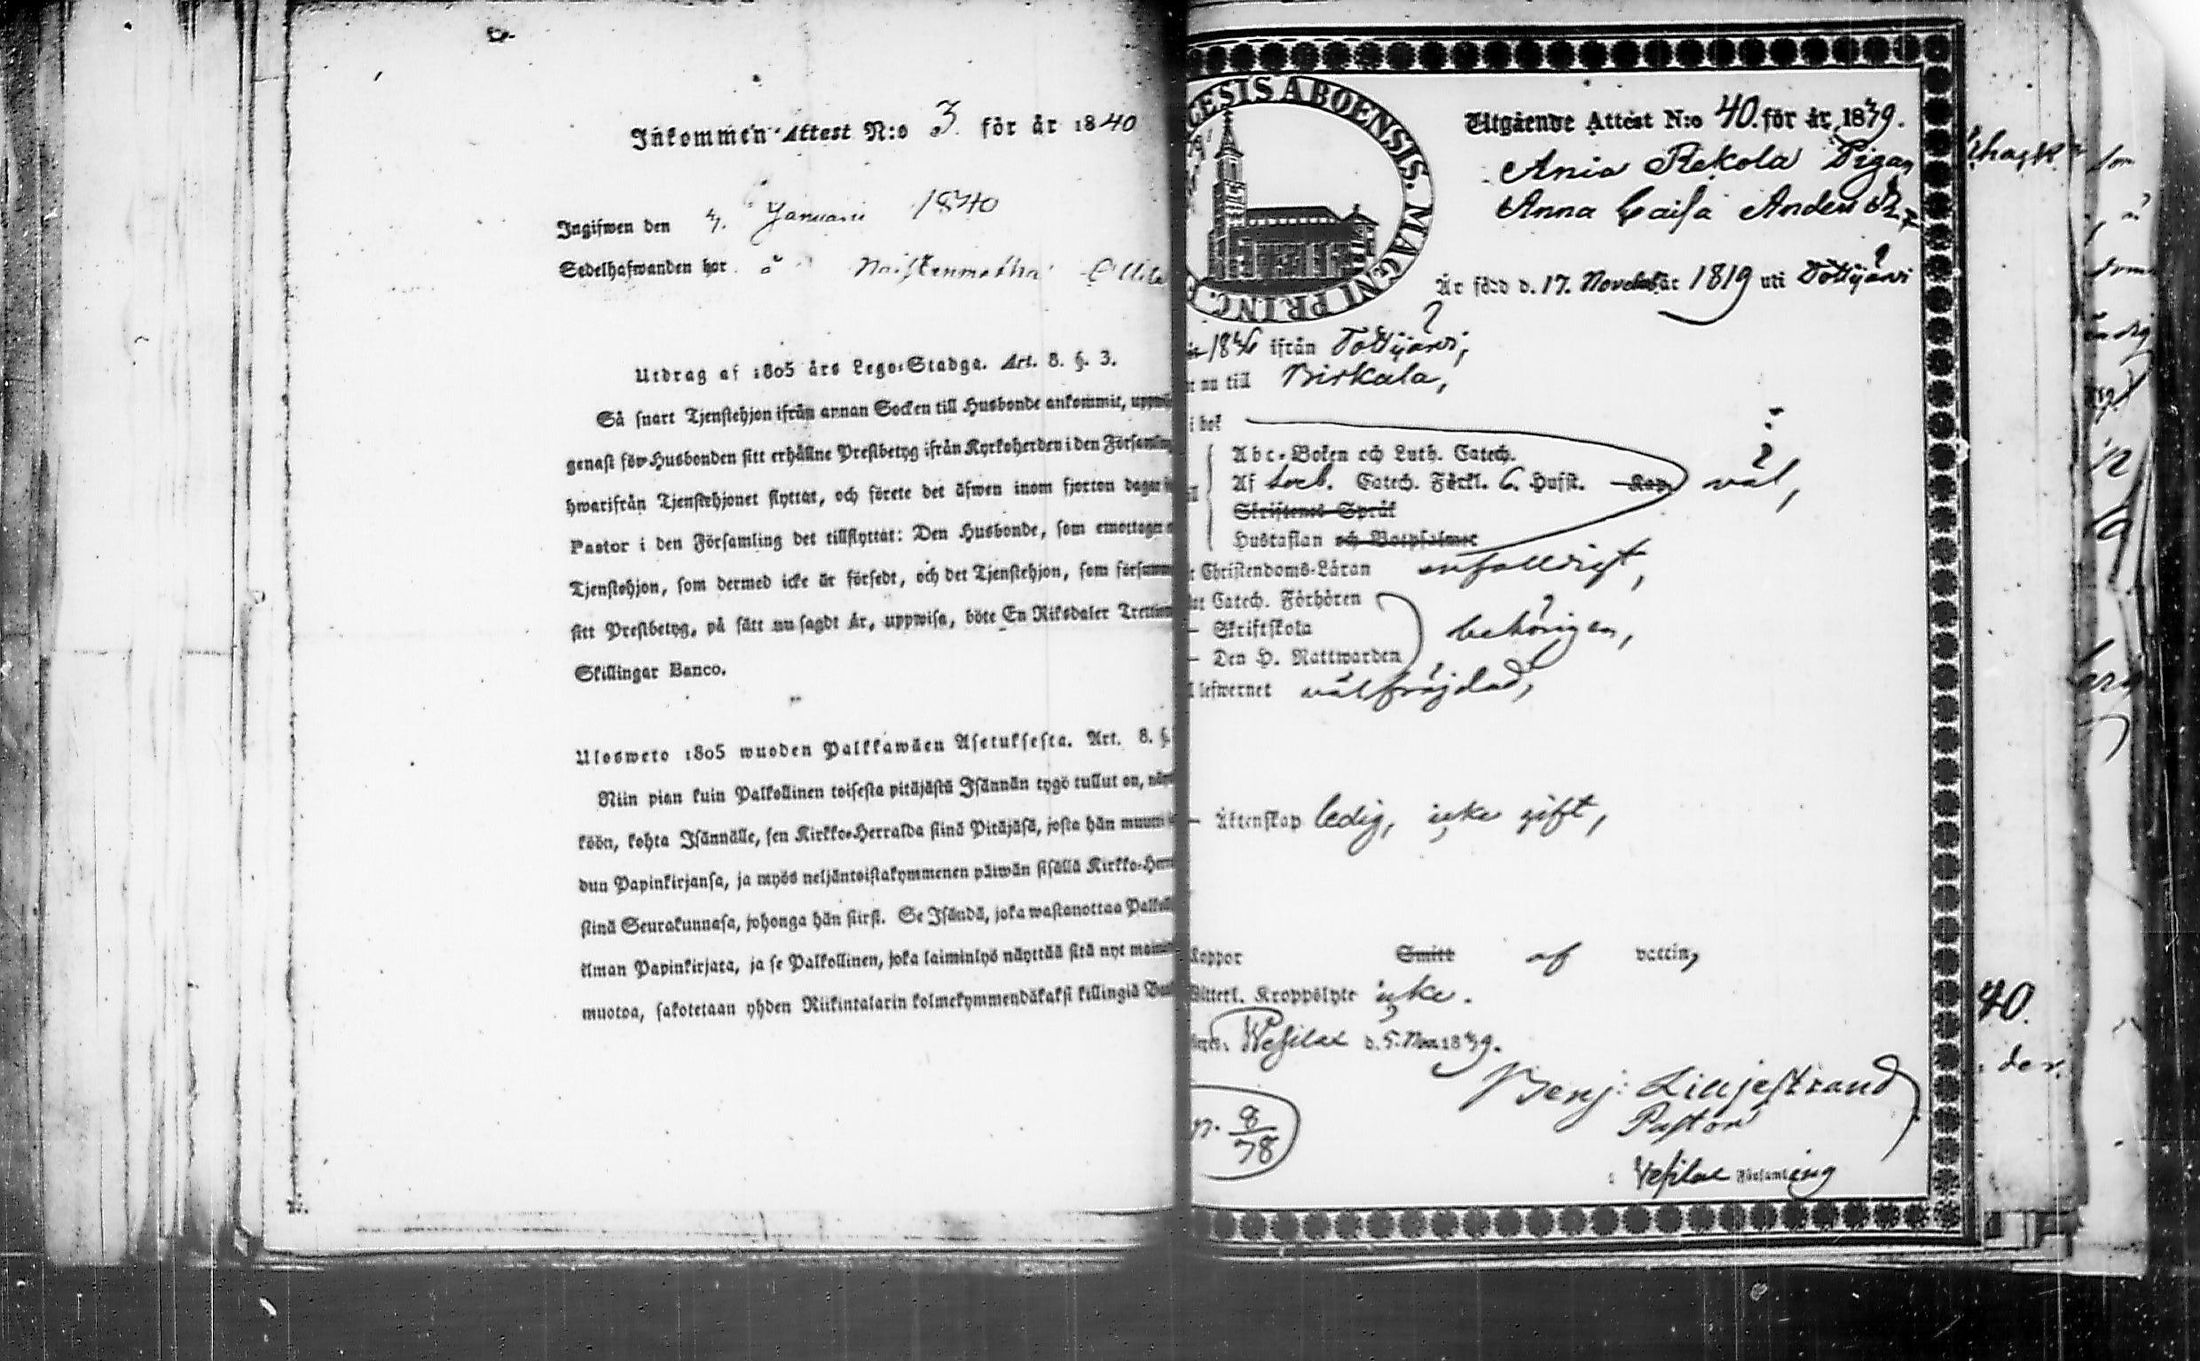 Inkommen Attest N:o 3. för år 1840
Ingifwen den 4. Januari 1840
Sedelhafwanden bor å
Utdrag af 1805 års Lego-Stadga. Art. 8. §. 3.
Så snart Tjenstehjon ifrån annan Socken till Husbonde ankommit,
genast för Husbonden sitt erhållne Prestbetyg ifrån Kyrkoherden i den
hwarifrån Tjenstehjonet flyttat, och förete det äfwen inom fjorton dagar
Pastor i den Församling det tillflyttat: Den Husbonde, som emottager
Tjenstehjon, som dermed icke är försedt, och det Tjenstehjon, som
sitt Prestbetyg, på sätt nu sagdt är, uppwisa, böte En Riksdaler
Skillingar Banco.
Ulosweto 1805 wuoden Palkkawäen Asetuksesta. Art. 8. §.
Niin pian kuin Palkollinen toisesta pitäjästä Isännän tygö tullut on,
köön, kohta Isännälle, sen Kirkko-Herralda siinä Pitäjäsä, josta hän
dun Papinkirjansa, ja myös neljäntoistakymmenen päiwän sisällä
siinä Seurakunnasa, johonga hän siirst. Se Isändä, joka wastanottaa
ilman Papinkirjata, ja se Palkollinen, joka laiminlyö näyttää sitä nyt
muotoa, sakotetaan yhden Riikintalarin kolmekymmendäkaksi killingiä
CESIS ABOENSIS. MAGNI PRINC.
Utgående Attest N:o 40. för år 1839.
Ania Rekola Pigan
Anna Caisa
Är född d. 17. November 1819 uti Tottijärvi
ifrån Tottijärvi,
nu till Birkala,
i bok
Abc-Boken och Luth. Catech.
Af Catech. Förkl. 6. Hufst. väl,
Skriftenes Språk
Hustaflan och Botpsalmer
Christendoms-Läran enfalldigt,
Catech. Förhören
— Skriftskola behörigen,
— Den H. Nattwarden
lefwernet välfräjdad,
— Äktenskap ledig, icke gift,
Koppor Smitt af vaccin,
Kroppslyte icke.
Vesilax d. 5. Nov. 1839.
Benj: Lilljestrand
Pastor
p. 8/78
i Vesilax Församling
40.